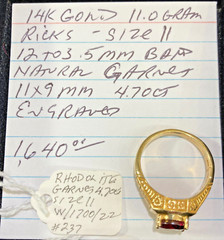 14K GOND 11.0 GRAM
RICKS - SIZE 11
12 TO 3.5 MM BAND
NATURAL GARNET
11X9 MM 4.70CT
ENGRAVED
1,640.00
RHODOLITE
GARNET 4.70CT
SIZE 11
W/1700/22
#237